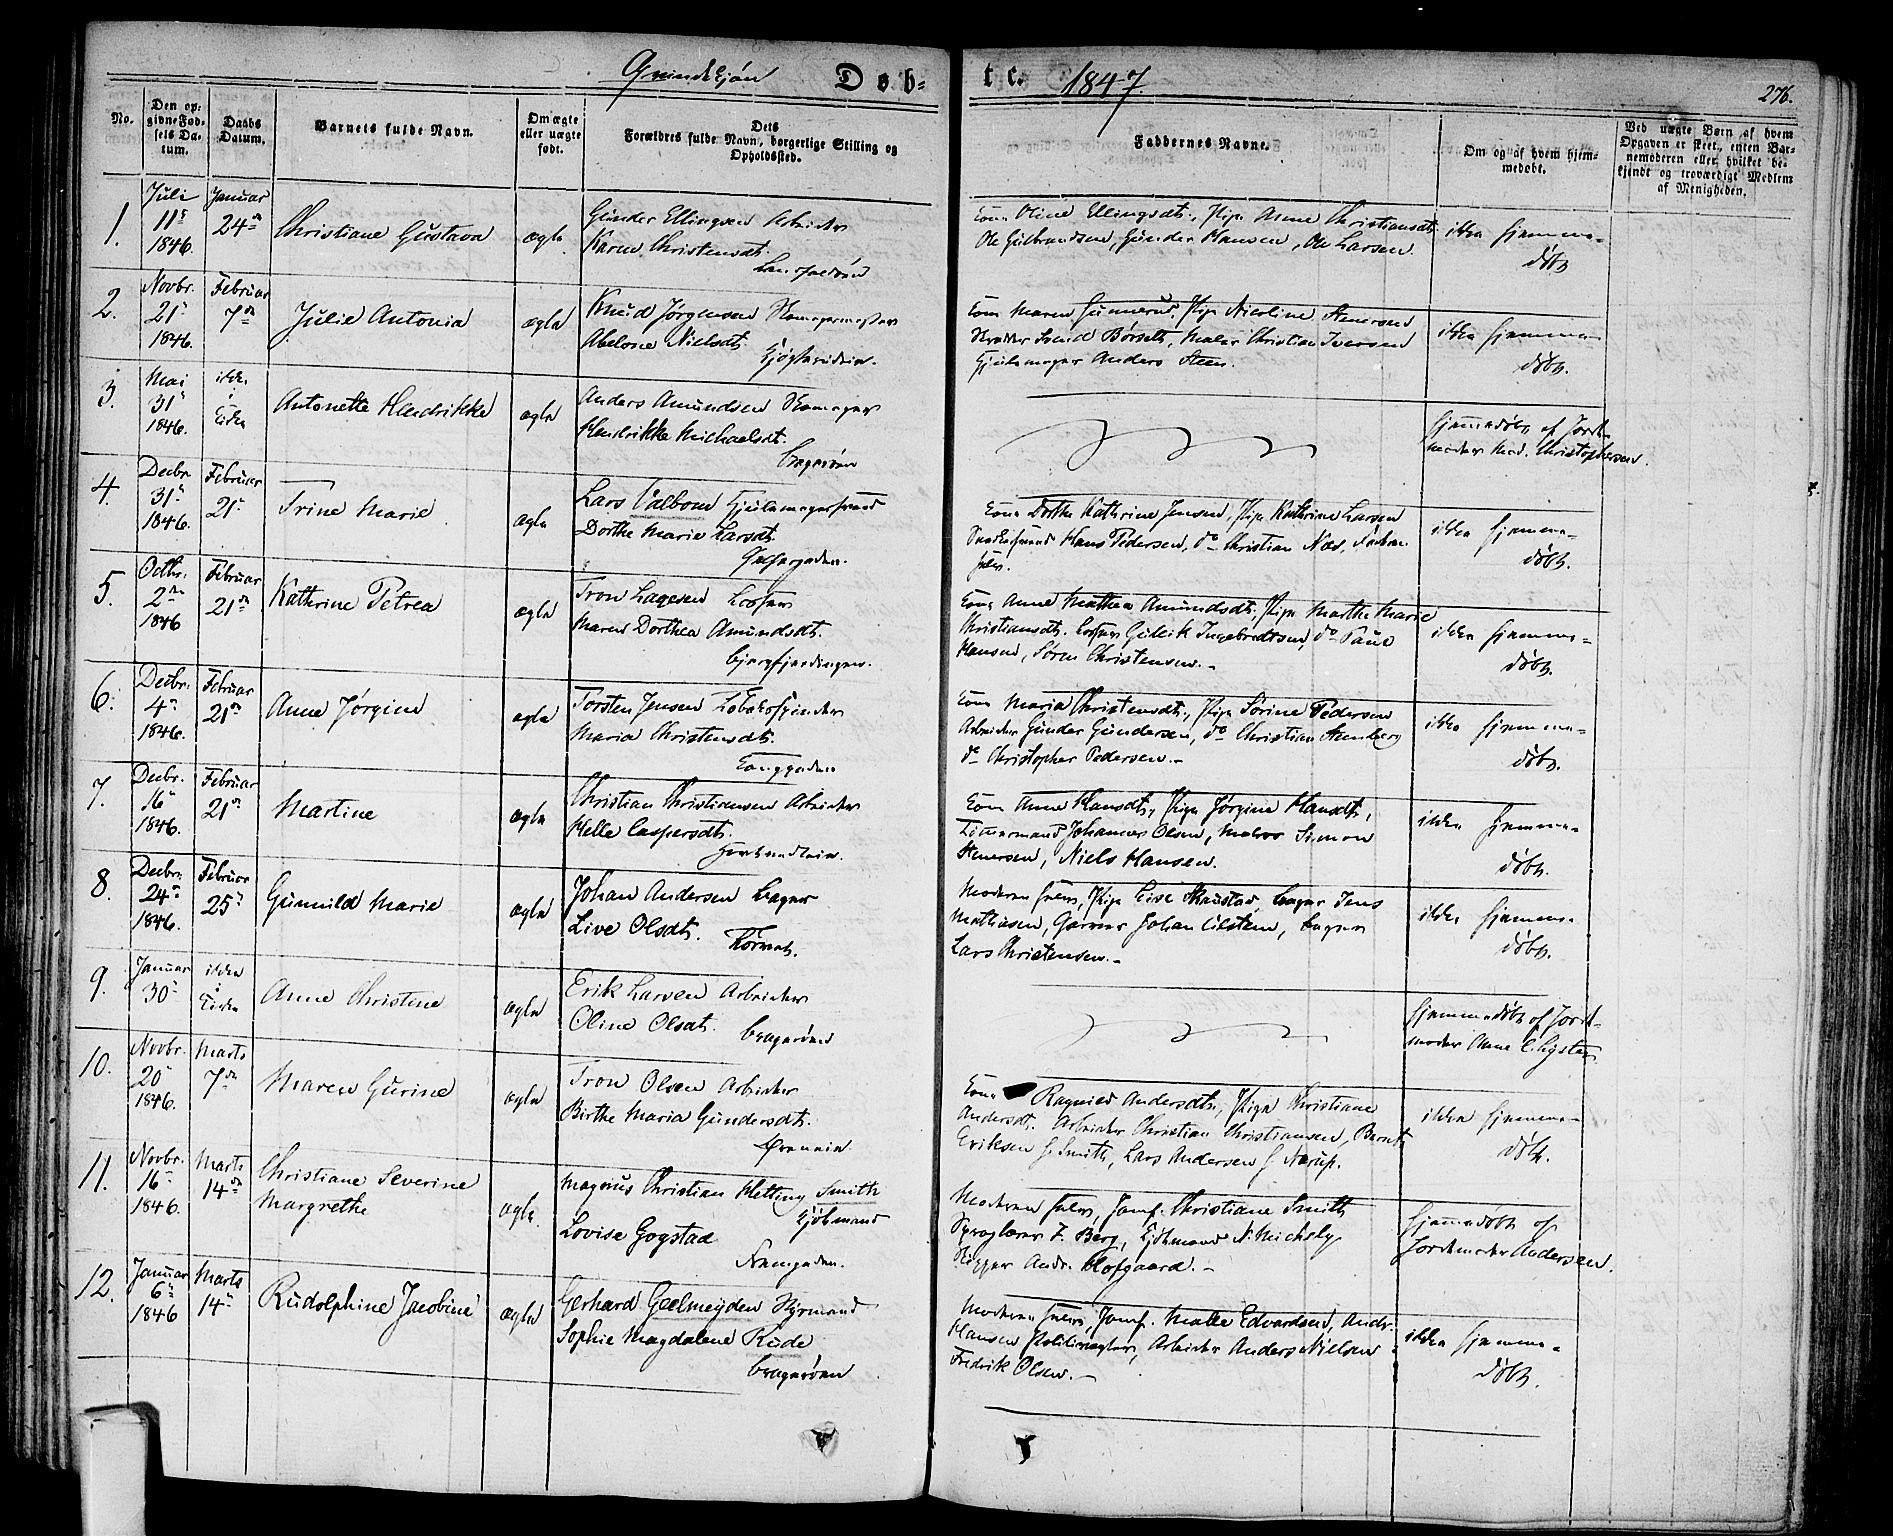 Qvindekjøn Døb=
te. 1847.
276.
No.
Den op=
givne Fød=
sels Da=
tum.
Daabs
Datum.
Barnets fulde Navn.
Om ægte
eller uægte
født.
Dets
Forældres fulde Navn, borgerlige Stilling og
Opholdssted.
Faddernes Navne.
Om og af hvem hjem=
medøbt.
Ved uægte Børn af hvem
Opgaven er skeet, enten Bar=
nemoderen eller hvilket be=
kjendt og troværdigt Medlem
af Menigheden.
1.
Juli
11
1846.
Januar
24
Christiane Gustava
ægte
Gunder Ellingsen Arbeider
Karen Christensdt.
Kone Oline Ellingsdt., Pige Anne Christiansdt.
Ole Gulbrandsen, Gunder Hansen, Ole Larsen.
ikke hjemme=
døbt
2.
Novbr.
21
1846.
Februar
7
Julie Antonia
ægte
Knud Jørgensen Skomagermester
Abelone Nielsdt.
Kone Maren Gunnerud, Pige Nicoline Stenersen
Svend Børseth, Maler Christian Iversen
Hjulmager Anders Steen.
ikke hjemme=
døbt.
3.
Mai
31
1846.
ikke
i
Kirken
Antonette Hendrikke
ægte
Anders Amundsen Skomager
Hendrikke Michaelsdt.
Bragerøen
hjemmedøbt af Jord=
moder Mad. Christophersen.
4.
Decbr.
31
1846.
Februar
21
Trine Marie
ægte
Lars Valbom Hjulmagersvend
Dorthe Marie Larsdt.
Kone Dorthe Kathrine Jensen, Pige Kathrine Larsen
Hans Pedersen, do Christian Næs, Faderen
selv.
ikke hjemme=
døbt.
5.
Octbr.
2
1846
Februar
21
Kathrine Petrea
ægte
Tron Lagesen Losser
Maren Dorthea Amundsdt.
Bjergfjerdingen.
Kone Anne Mathea Amundsdt., Pige Marthe Marie
Christiansdt. Losser Gulik Ingebretsen, do Paul
Hansen, Søren Christensen.-
ikke hjemme=
døbt.
6.
Decbr.
4
1846.
Februar
21
Anne Jørgine
ægte
Torsten Jensen
Maria Christensdt.
Tanggaden
Kone Maria Christensdt., Pige Sørine Pedersen
Arbeider Gunder Gundersen, do Christian Stenberg
do Christopher Pedersen.-
ikke hjemme=
døbt.
7.
Decbr.
16
1846.
Februar
21
Martine
ægte
Christian Christensen Arbeider
Helle Caspersdt.
Kone Anne Hansdt., Pige Jørgine Hansdt.,
Tømmermand Johannes Olsen, Matros Simon
Stenersen, Niels Hansen.
ikke hjemme=
døbt.
8.
Decbr.
24
1846.
Februar
25
Gunnild Marie
ægte
Johan Andersen Bager
Live Olsdt.
Moderen selv, Pige Lise Skaustad, Bager Jens
Mathisen, Garver Johan Eilstein, Bager
Lars Christensen.-
ikke hjemme=
døbt.
9.
Januar
30
ikke
i
Kirken
Anne Christine
ægte
Erik Larsen Arbeider
Oline Olsdt.
Bragerøen
hjemmedøbt af Jord=
moder Anne C. Lyster.
10.
Novbr.
20
1846.
Marts
7
Maren Gurine
ægte
Tron Olsen Arbeider
Birthe Maria Gundersdt.
Kone Ragnild Andersdt., Pige Christiane
Andersdt. Arbeider Christian Christiansen, Bernt
Eriksen f. Smith, Lars Andersen f. Nærup.
ikke hjemme=
døbt.
11.
Novbr.
16
1846.
Marts
14
Christiane Severine
Margrethe
ægte.
Magnus Christian Hetting Smith
Kjøbmand
Lovise Gogstad
Moderen selv, Jomf. Christiane Smith
Sproglærer F. Berg, Kjøbmand N. Michely
Skipper Andr. Hofgaard.-
hjemmedøbt af
Jordemoder Andersen.
12.
Januar
6
1846
Marts
14
Rudolphine Jacobine
ægte
Gerhard Geelmeyden Styrmand
Sophie Magdalene Rude
Bragerøen
Moderen selv, Jomf. Malle Edvardsen, Andr.
Hansen Politimester, Arbeider Anders Nielsen
Fredrik Olsen.-
ikke hjemme=
døbt.